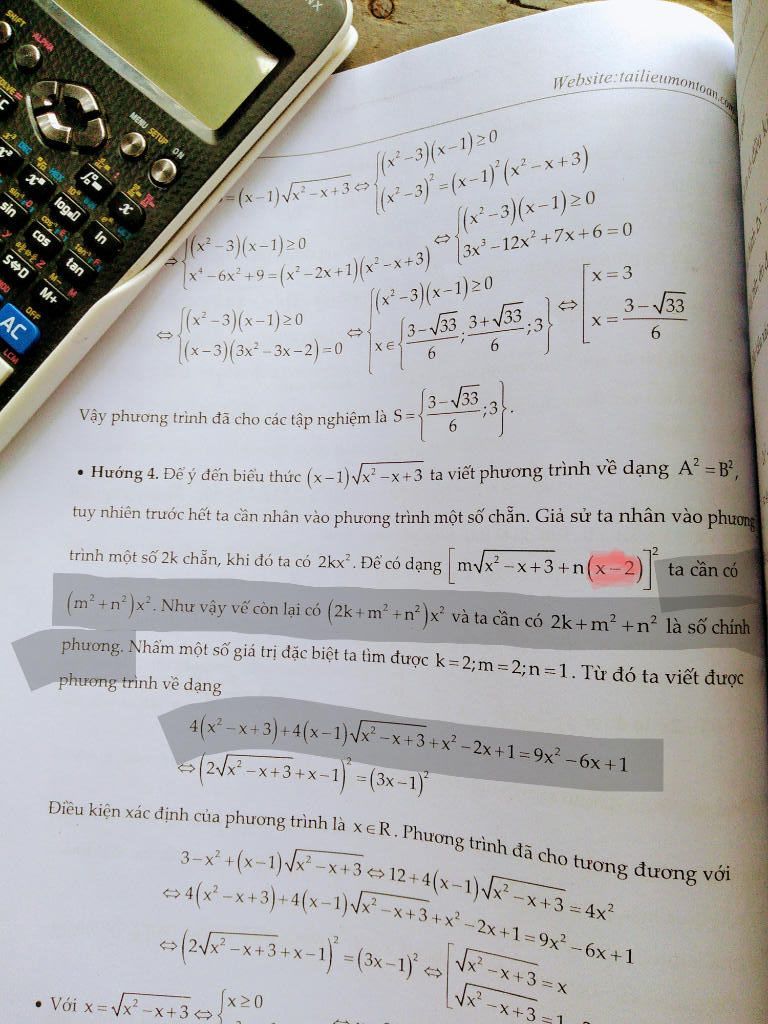 Website:tailieumontoan.com
= (x−1)√(x²−x+3) ⇔ {(x²−3)(x−1) ≥ 0
{(x²−3)² = (x−1)²(x²−x+3)
⇔ {(x²−3)(x−1) ≥ 0
{x⁴−6x²+9 = (x²−2x+1)(x²−x+3)
⇔ {(x²−3)(x−1) ≥ 0
{3x³−12x²+7x+6 = 0
⇔ {(x²−3)(x−1) ≥ 0
{(x−3)(3x²−3x−2) = 0
⇔ {(x²−3)(x−1) ≥ 0
{x ∈ {(3−√33)/6; (3+√33)/6; 3}
⇔ [x = 3
[x = (3−√33)/6
Vậy phương trình đã cho các tập nghiệm là S = {(3−√33)/6; 3}.
• Hướng 4. Để ý đến biểu thức (x−1)√(x²−x+3) ta viết phương trình về dạng A² = B²,
tuy nhiên trước hết ta cần nhân vào phương trình một số chẵn. Giả sử ta nhân vào phương
trình một số 2k chẵn, khi đó ta có 2kx². Để có dạng [m√(x²−x+3) + n(x−2)]² ta cần có
(m²+n²)x². Như vậy vế còn lại có (2k+m²+n²)x² và ta cần có 2k+m²+n² là số chính
phương. Nhẩm một số giá trị đặc biệt ta tìm được k = 2; m = 2; n = 1. Từ đó ta viết được
phương trình về dạng
4(x²−x+3)+4(x−1)√(x²−x+3)+x²−2x+1 = 9x²−6x+1
⇔ (2√(x²−x+3)+x−1)² = (3x−1)²
Điều kiện xác định của phương trình là x ∈ R. Phương trình đã cho tương đương với
3−x²+(x−1)√(x²−x+3) ⇔ 12+4(x−1)√(x²−x+3) = 4x²
⇔ 4(x²−x+3)+4(x−1)√(x²−x+3)+x²−2x+1 = 9x²−6x+1
⇔ (2√(x²−x+3)+x−1)² = (3x−1)² ⇔ [√(x²−x+3) = x
[√(x²−x+3) = 1
• Với x = √(x²−x+3) ⇔ {x ≥ 0
SHIFT
ALPHA
MENU SETUP
ON
x²
log□
ln
sin
cos
tan
S⇔D
M+
M−
M
OFF
AC
LCM